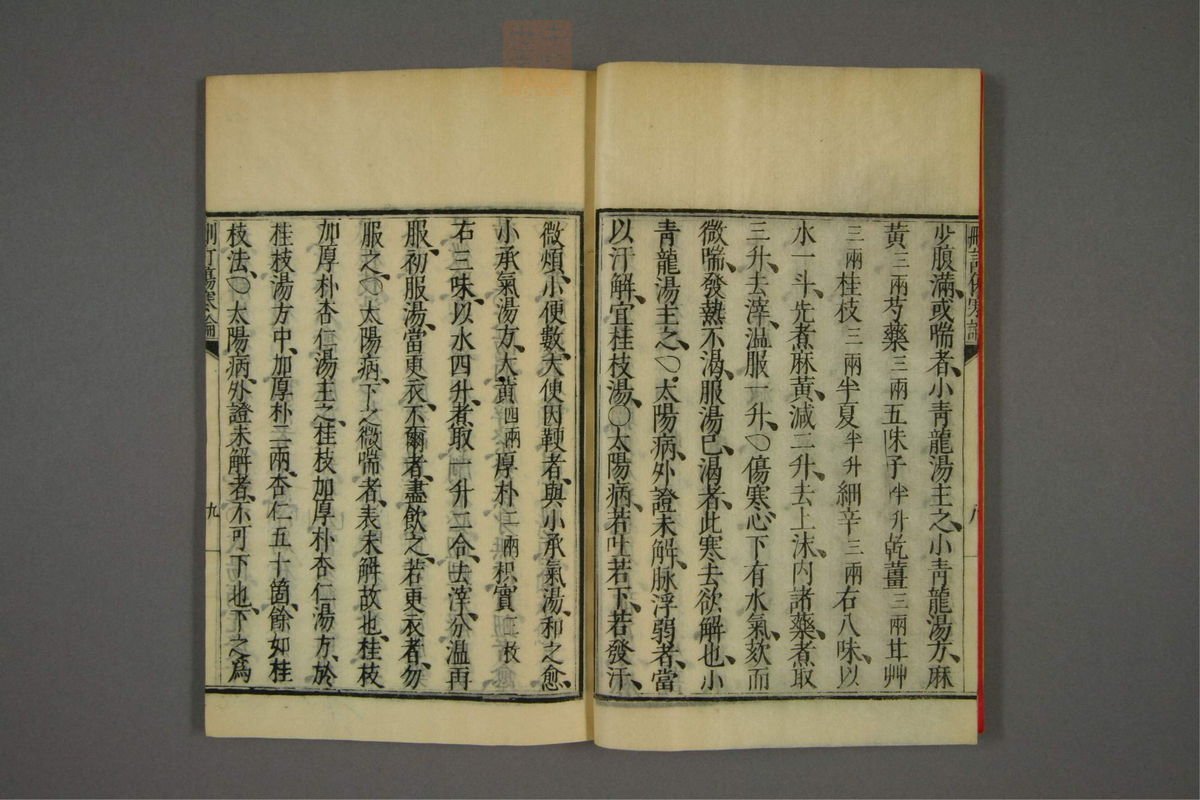 刪訂傷寒論
少腹滿、或喘者、小青龍湯主之、小青龍湯方、麻
黃三兩芍藥三兩五味子半升乾薑三兩甘艸
三兩桂枝三兩半夏半升細辛三兩右八味、以
水一斗、先煮麻黃、減二升、去上沫、內諸藥、煮取
三升、去滓、溫服一升、〇傷寒、心下有水氣、欬而
微喘、發熱不渴、服湯已、渴者、此寒去欲解也、小
青龍湯主之、〇太陽病、外證未解、脉浮弱者、當
以汗解、宜桂枝湯、〇太陽病、若吐若下、若發汗、
微煩、小便數、大便因鞕者、與小承氣湯、和之愈、
小承氣湯方、大黃四兩厚朴二兩枳實三枚
右三味、以水四升、煮取一升二合、去滓、分溫再
服、初服湯、當更衣、不爾者、盡飲之、若更衣者、勿
服之、〇太陽病、下之微喘者、表未解故也、桂枝
加厚朴杏仁湯主之、桂枝加厚朴杏仁湯方、於
桂枝湯方中、加厚朴二兩、杏仁五十箇、餘如桂
枝法、〇太陽病、外證未解者、不可下也、下之爲
刪訂傷寒論
九